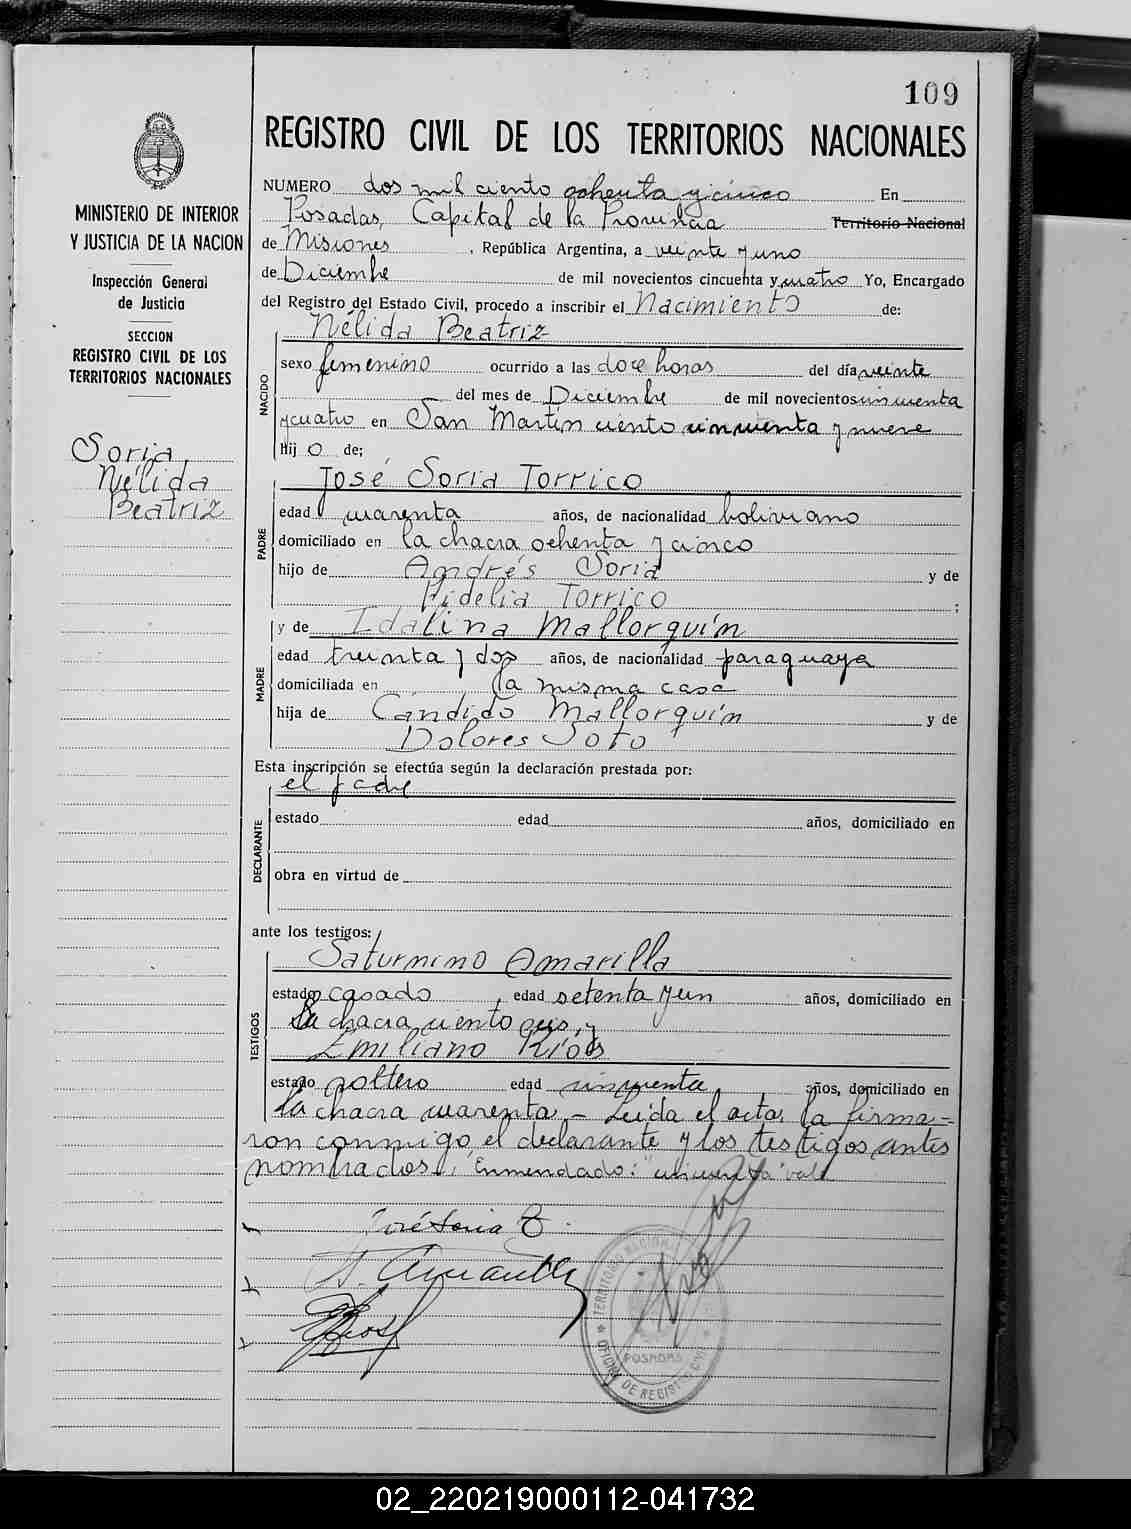 109
REGISTRO CIVIL DE LOS TERRITORIOS NACIONALES
MINISTERIO DE INTERIOR
Y JUSTICIA DE LA NACION
Inspección General
de Justicia
SECCION
REGISTRO CIVIL DE LOS
TERRITORIOS NACIONALES
Soria,
Nélida
Beatriz
NUMERO dos mil ciento ochenta y cinco En
Posadas, Capital de la Provincia Territorio Nacional
de Misiones, República Argentina, a veinte y uno
de Diciembre de mil novecientos cincuenta y cuatro Yo, Encargado
del Registro del Estado Civil, procedo a inscribir el Nacimiento de:
NACIDO
Nélida Beatriz
sexo femenino ocurrido a las doce horas del día veinte
del mes de Diciembre de mil novecientos cincuenta
y cuatro en San Martín ciento cincuenta y nueve
Hij o de;
PADRE
José Soria Torrico
edad cuarenta años, de nacionalidad boliviano
domiciliado en la chacra ochenta y cinco
hijo de Andrés Soria y de
Fidelia Torrico ;
MADRE
y de Idalina Mallorquín
edad treinta y dos años, de nacionalidad paraguaya
domiciliada en la misma casa
hija de Cándido Mallorquín y de
Dolores Soto
Esta inscripción se efectúa según la declaración prestada por:
DECLARANTE
el padre
estado edad años, domiciliado en
obra en virtud de
ante los testigos:
TESTIGOS
Saturnino Amarilla
estado casado, edad setenta y un años, domiciliado en
la chacra ciento seis, y
Emiliano Ríos
estado soltero edad cincuenta, años, domiciliado en
la chacra cuarenta.- Leída el acta, la firma-
ron conmigo, el declarante y los testigos antes
nombrados.- Enmendado: "cincuenta" vale
José Soria T.
S. Amarilla
ERíos
TERRITORIO NACIONAL
POSADAS
OFICINA DE REGISTRO CIVIL
02_220219000112-041732